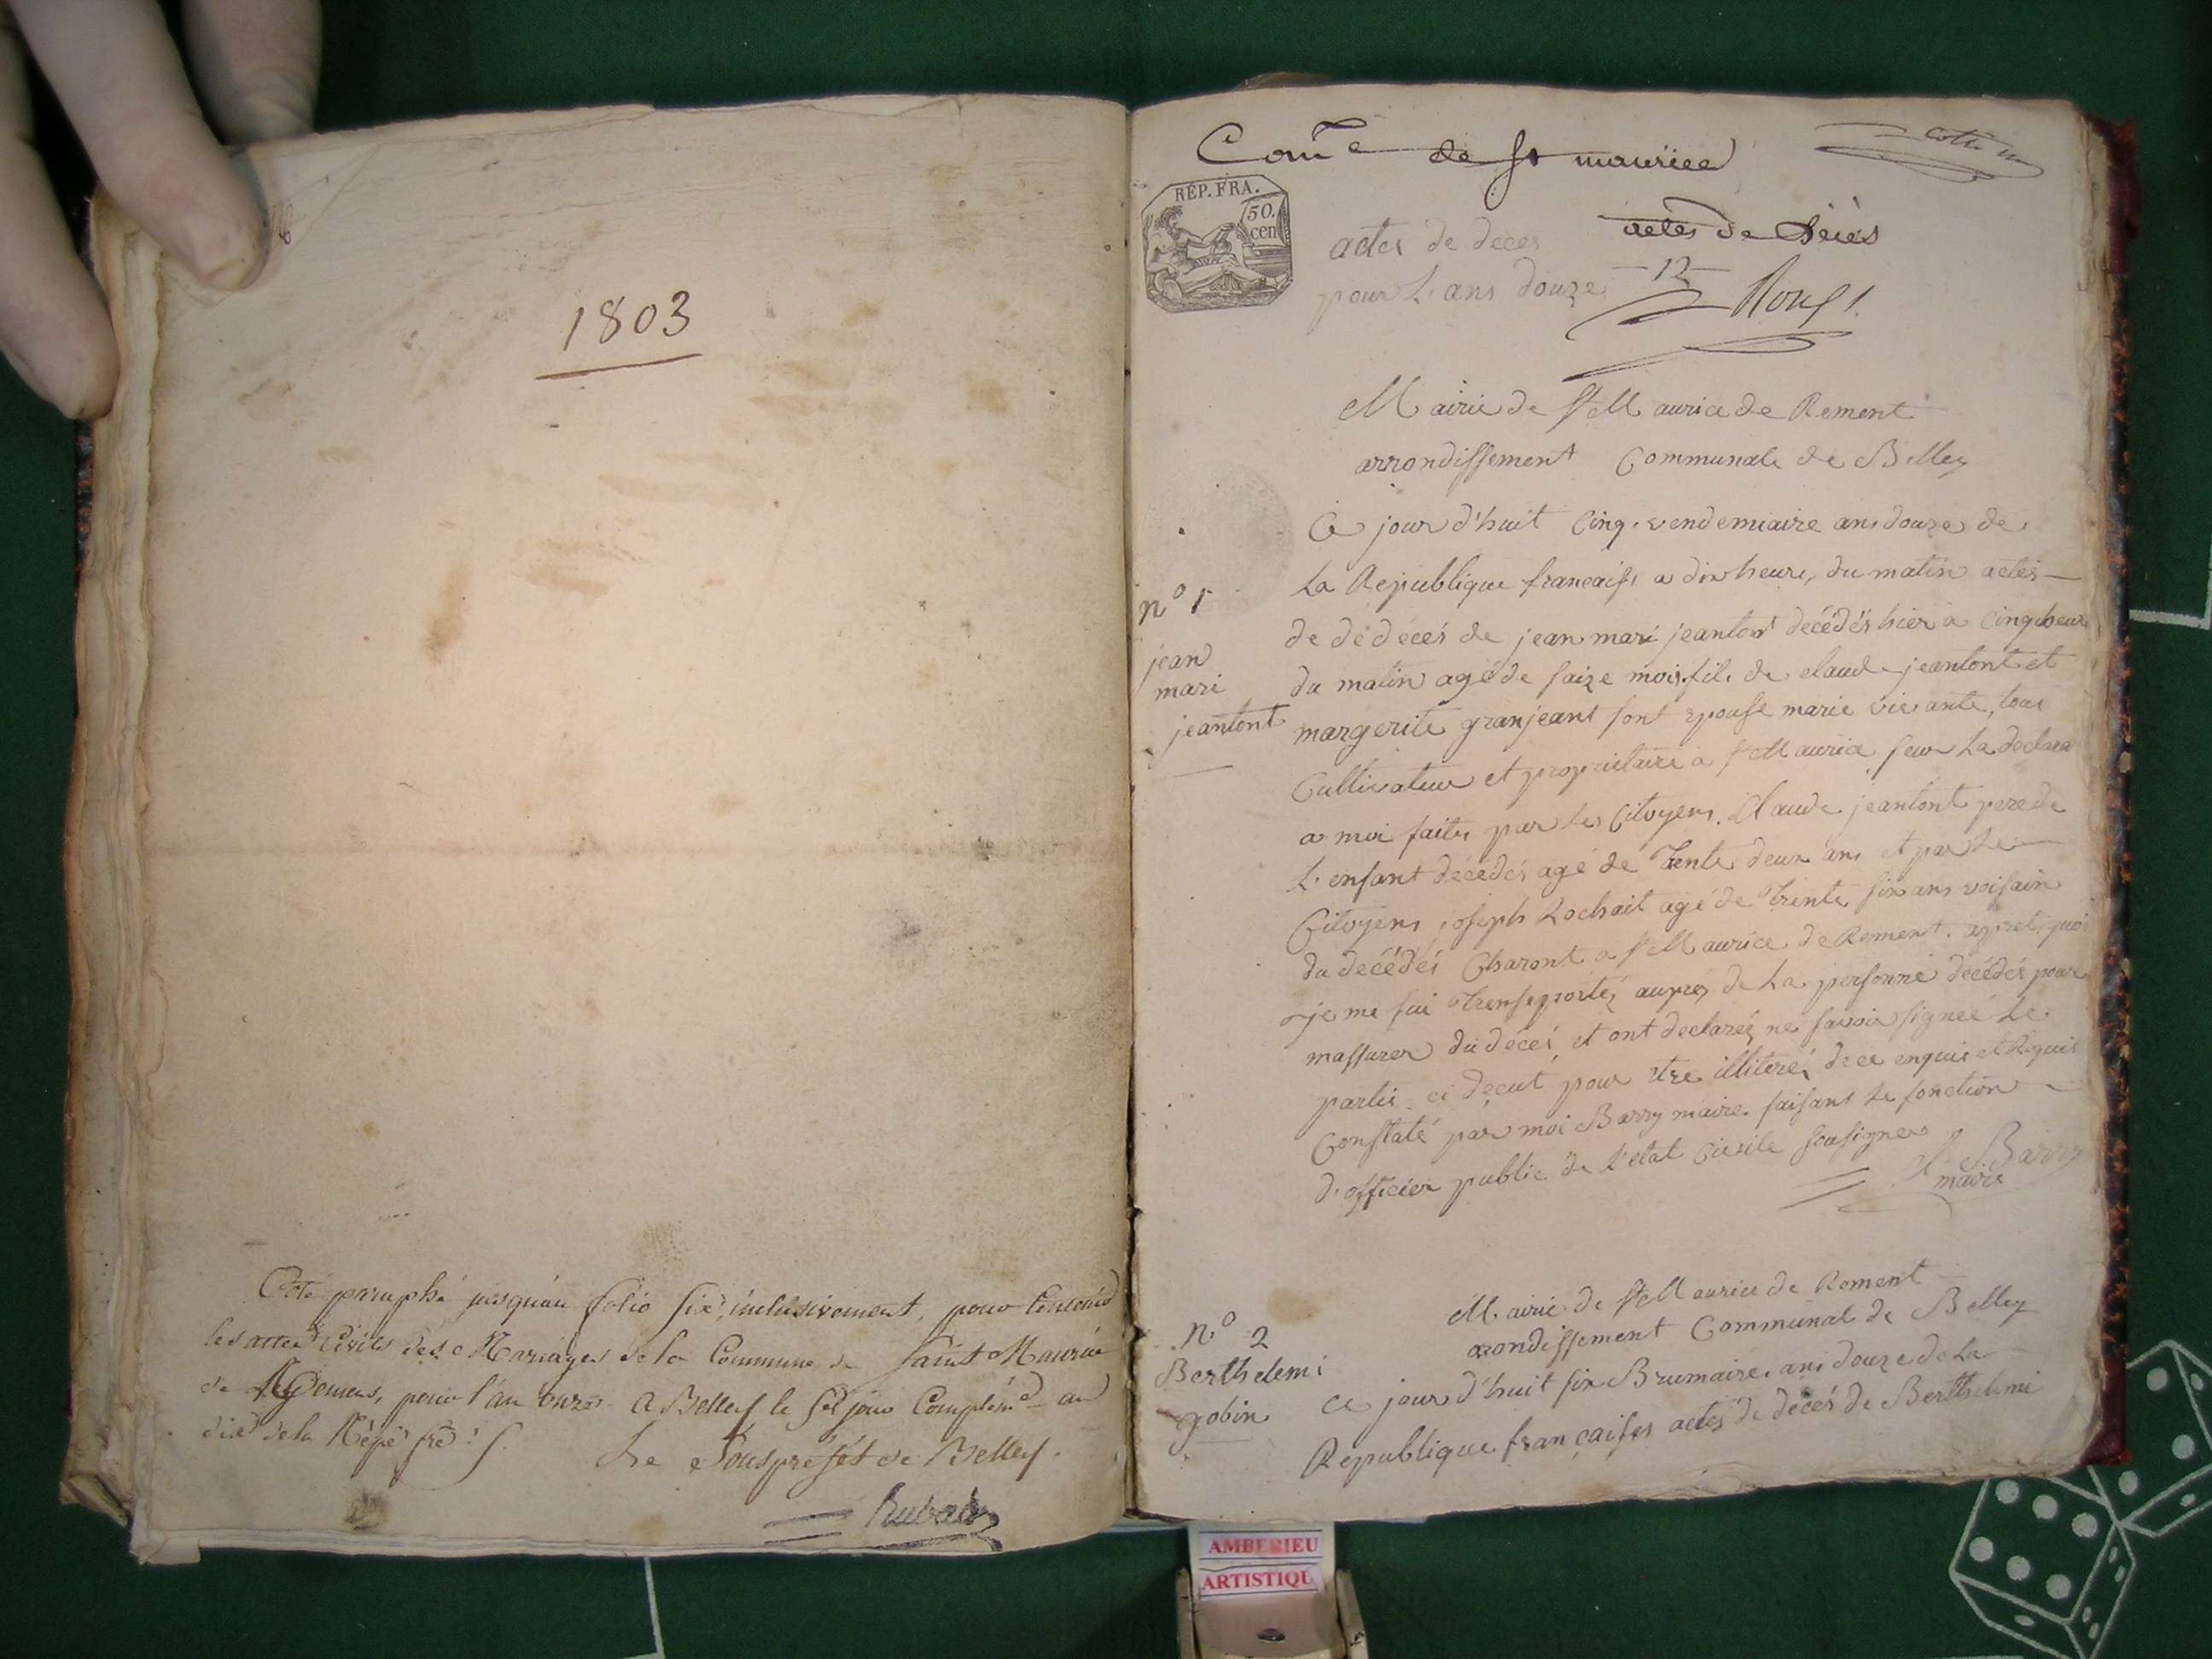 1803
Coté paraphé jusqu'au folio six inclusivement, pour
les actes Civils des Mariages de la Commune de Saint Maurice
de Remens, pour l'an onze. A Belley le jour Complém.re an
dix de la Rép. fr.
Le Sous préfét de Belley.
Com.e de st maurice
RÉP. FRA.
50.
cen
actes de Décès
actes de deces
pour L'ans douze
12
Mairie de St Maurice de Rement
arrondissement Communale de Belley
Ce jour d'huit Cinq vendemiaire ans douze de
La Republique francaise a dix heure, du matin actes
n° 1
jean
mari
jeantont
de dé décés de jean mari jeantont décédés hier a Cinq heure
du matin agé de saize mois fils de claude jeantont et
margerite granjeant sont epouse marie vivante, tous
Cultivateur et proprietaire a St Maurice seur La declara
a moi faites par Les Citoyens Claude jeantont pere de
L'enfant décédés agé de Trente deux ans et par Le
Citoyens joseph Lochait agé de Trente six ans voisain
du décédés Charont a St Maurice de Rement. apret quoi
je me sui Transeportéz aupres de La personne décédés pour
massurer du décés et ont declaréz ne savoir signeé Le
partis ci deçut pour etre illiteré, de ce enquis et Requis
Constaté par moi Barry maire faisant Le fonction
d'officier public de L'état Civile sousigner
Barry
maire
n° 2
Berthelemi
gobin
Mairie de St Maurice de Rement
arondissement Communal de Belley
Ce jour d'huit six Brumaire ans douze de La
Republique françaises actes de décés de Berthelemi
AMBERIEU
ARTISTIQU